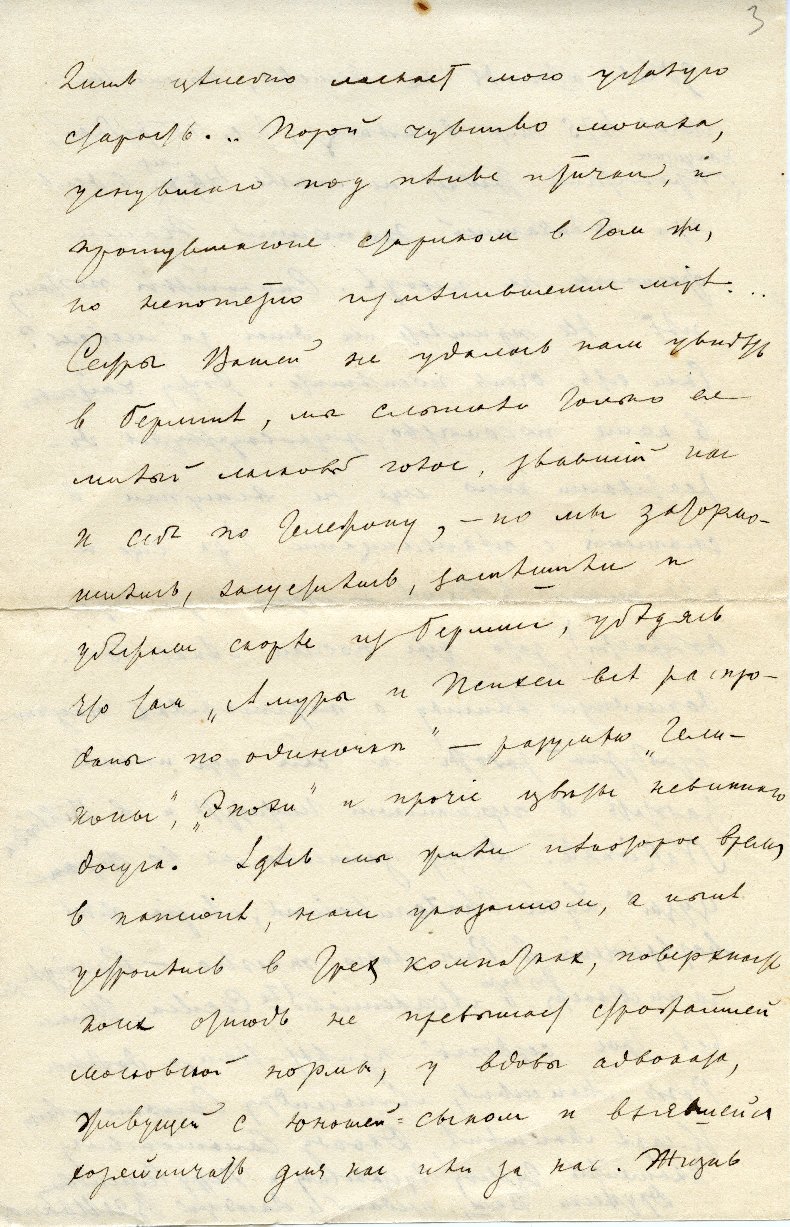 3
лишь цѣлебно ласкает мою усталую
старость... Порой чувство монаха,
уснувшаго под пѣние птички, и
проснувшагося стариком в том же,
но непонятно измѣнившемся мірѣ...
Сестры Вашей не удалось нам увидѣть
в Берлинѣ, мы слышали только ея
милый ласковый голос, звавший нас
к себѣ по телефону, — но мы затормо-
шились, засуетились, и
убѣжали скорѣе из Берлина, убѣдясь
что там „Амуры и Психеи всѣ распро-
даны по одиночкѣ" — разумѣю „Гели-
коны", „Эпохи" и прочіе цвѣты невиннаго
досуга. Здѣсь мы жили нѣкоторое время
в пансіонѣ, нам указанном, а нынѣ
устроились в трех комнатах, поверхность
коих отнюдь не превышает строжайшей
московской нормы, у вдовы адвоката,
живущей с юношей-сыном и взявшейся
хозяйничать для нас или за нас. Жизнь